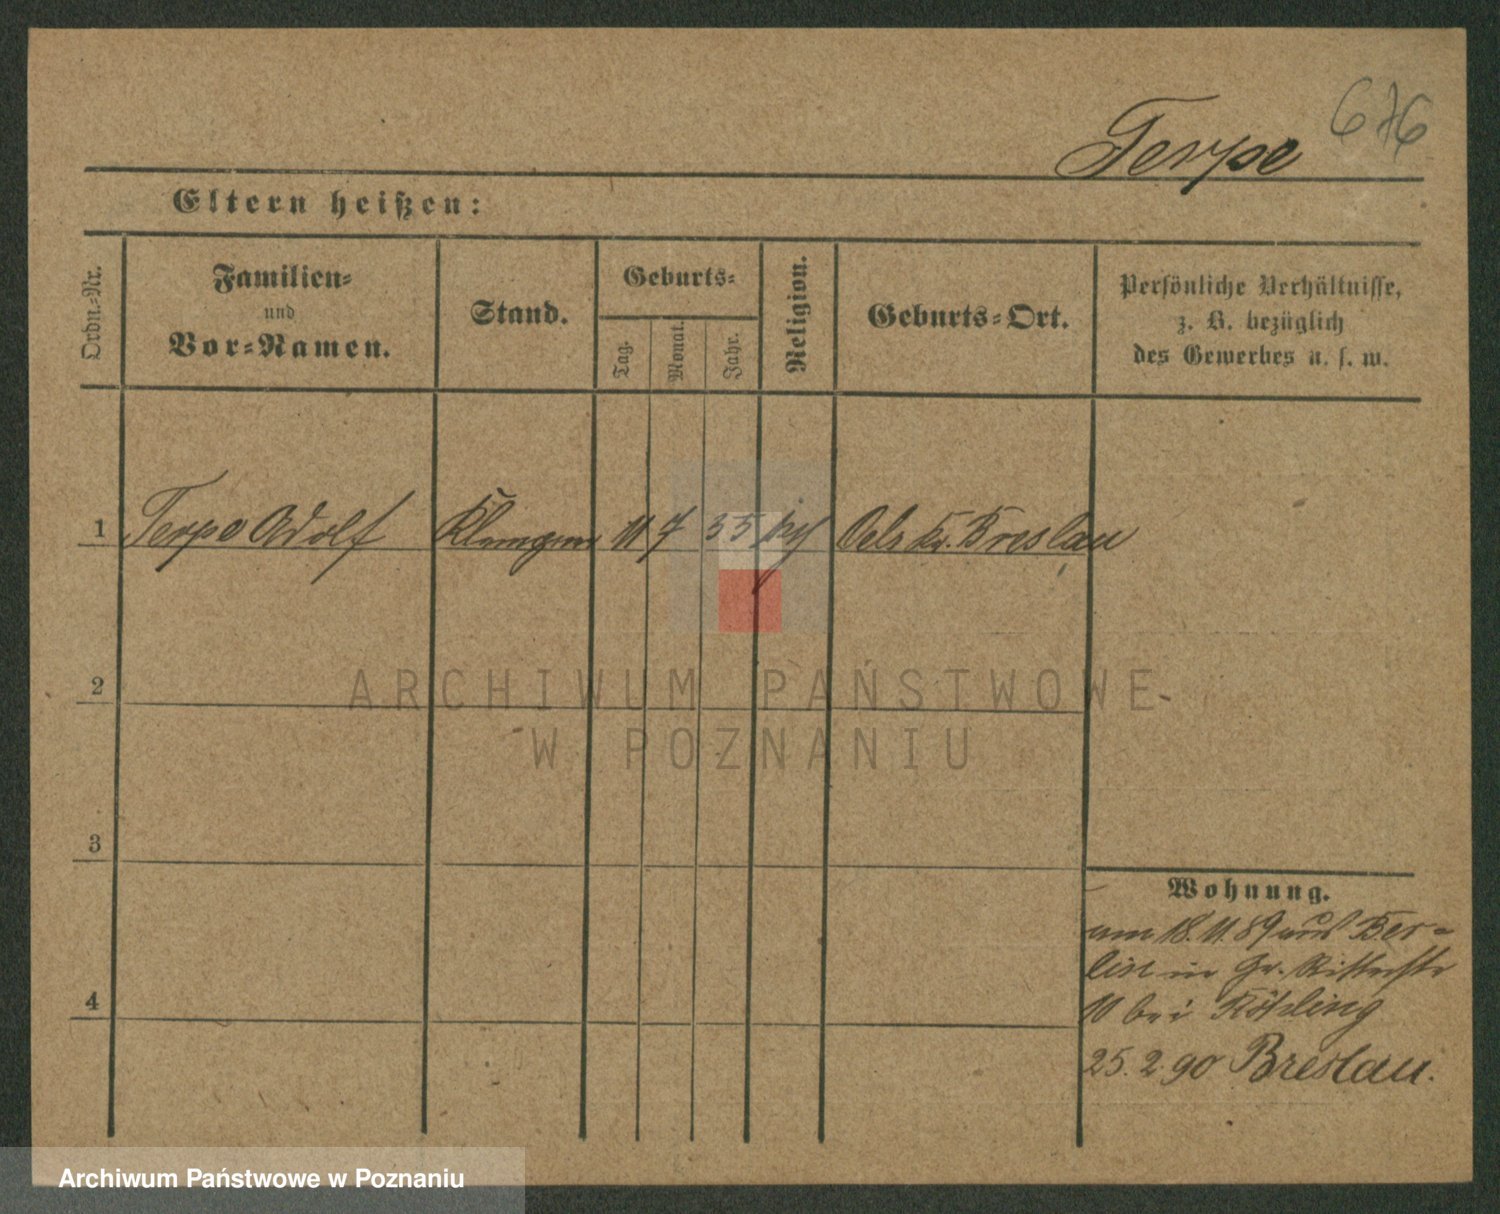 676
Terpe
Eltern heißen:
Ordn.-Nr.
Familien-
und
Vor-Namen.
Stand.
Geburts-
Tag.
Monat.
Jahr.
Religion.
Geburts-Ort.
Persönliche Verhältnisse,
z. B. bezüglich
des Gewerbes u. s. w.
1 Terpe Adolf 11 7 55 Oels Kr. Breslau
2
3
4
Wohnung.
am 18. 11. 89 aus Ber-
lin in Gr. Ritterstr
10 bei
25. 2. 90 Breslau.
ARCHIWUM PAŃSTWOWE
W POZNANIU
Archiwum Państwowe w Poznaniu